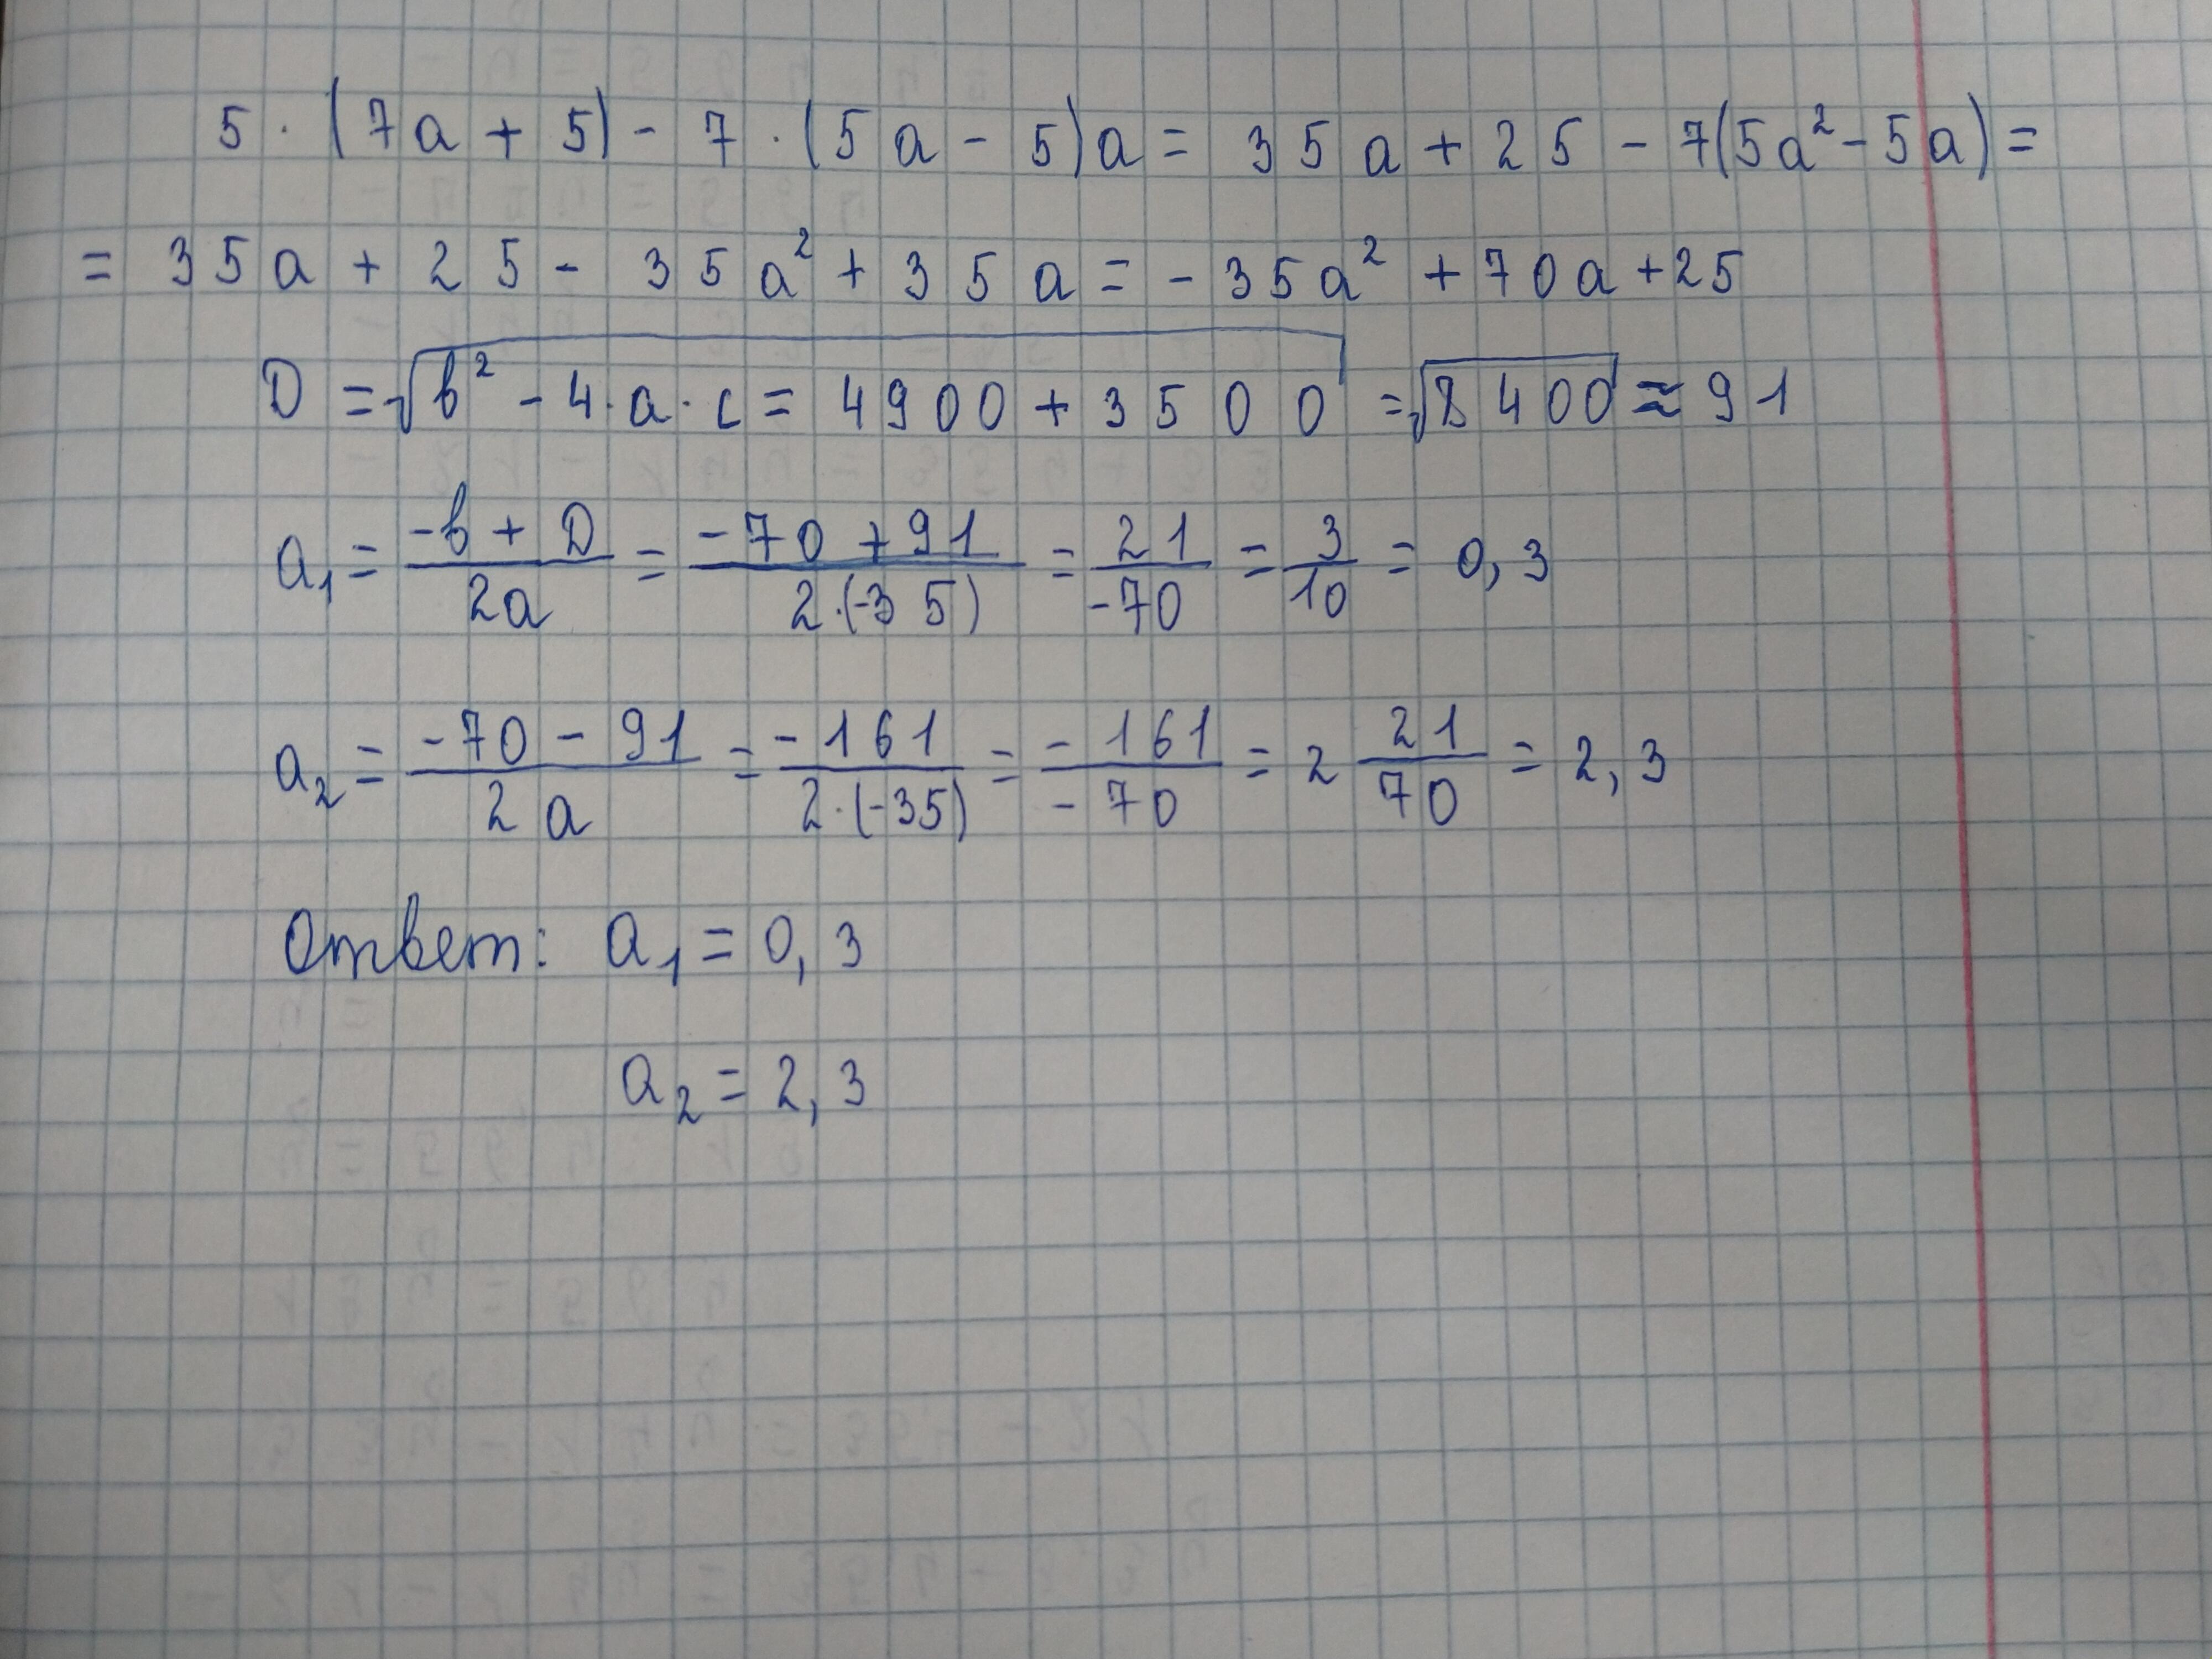 5 · (7a + 5) - 7 · (5a - 5)a = 35a + 25 - 7(5a² - 5a) =
= 35a + 25 - 35a² + 35a = -35a² + 70a + 25
D = √(b² - 4·a·c = 4900 + 3500) = √8400 ≈ 91
a₁ = (-b + D)/(2a) = (-70 + 91)/(2·(-35)) = 21/(-70) = 3/10 = 0,3
a₂ = (-70 - 91)/(2a) = (-161)/(2·(-35)) = (-161)/(-70) = 2 21/70 = 2,3
Ответ: a₁ = 0,3
a₂ = 2,3